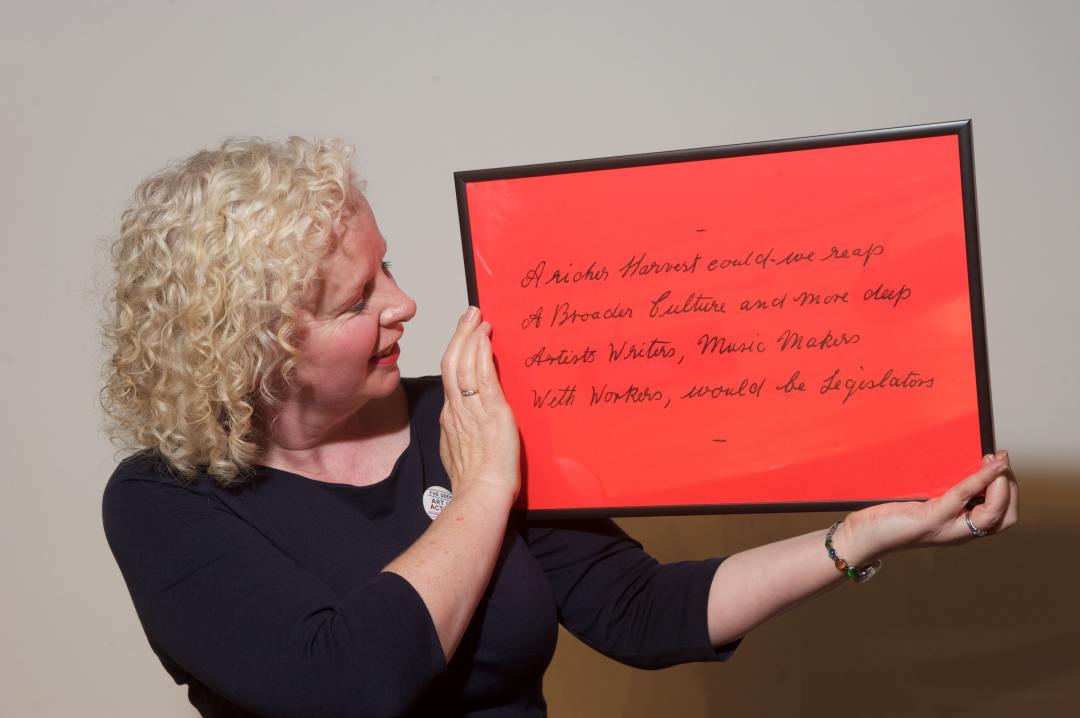 A richer Harvest could-we reap
A Broader Culture and more deep
Artists Writers, Music Makers
With Workers, would be Legislators
I'VE SEEN
ART
ACT